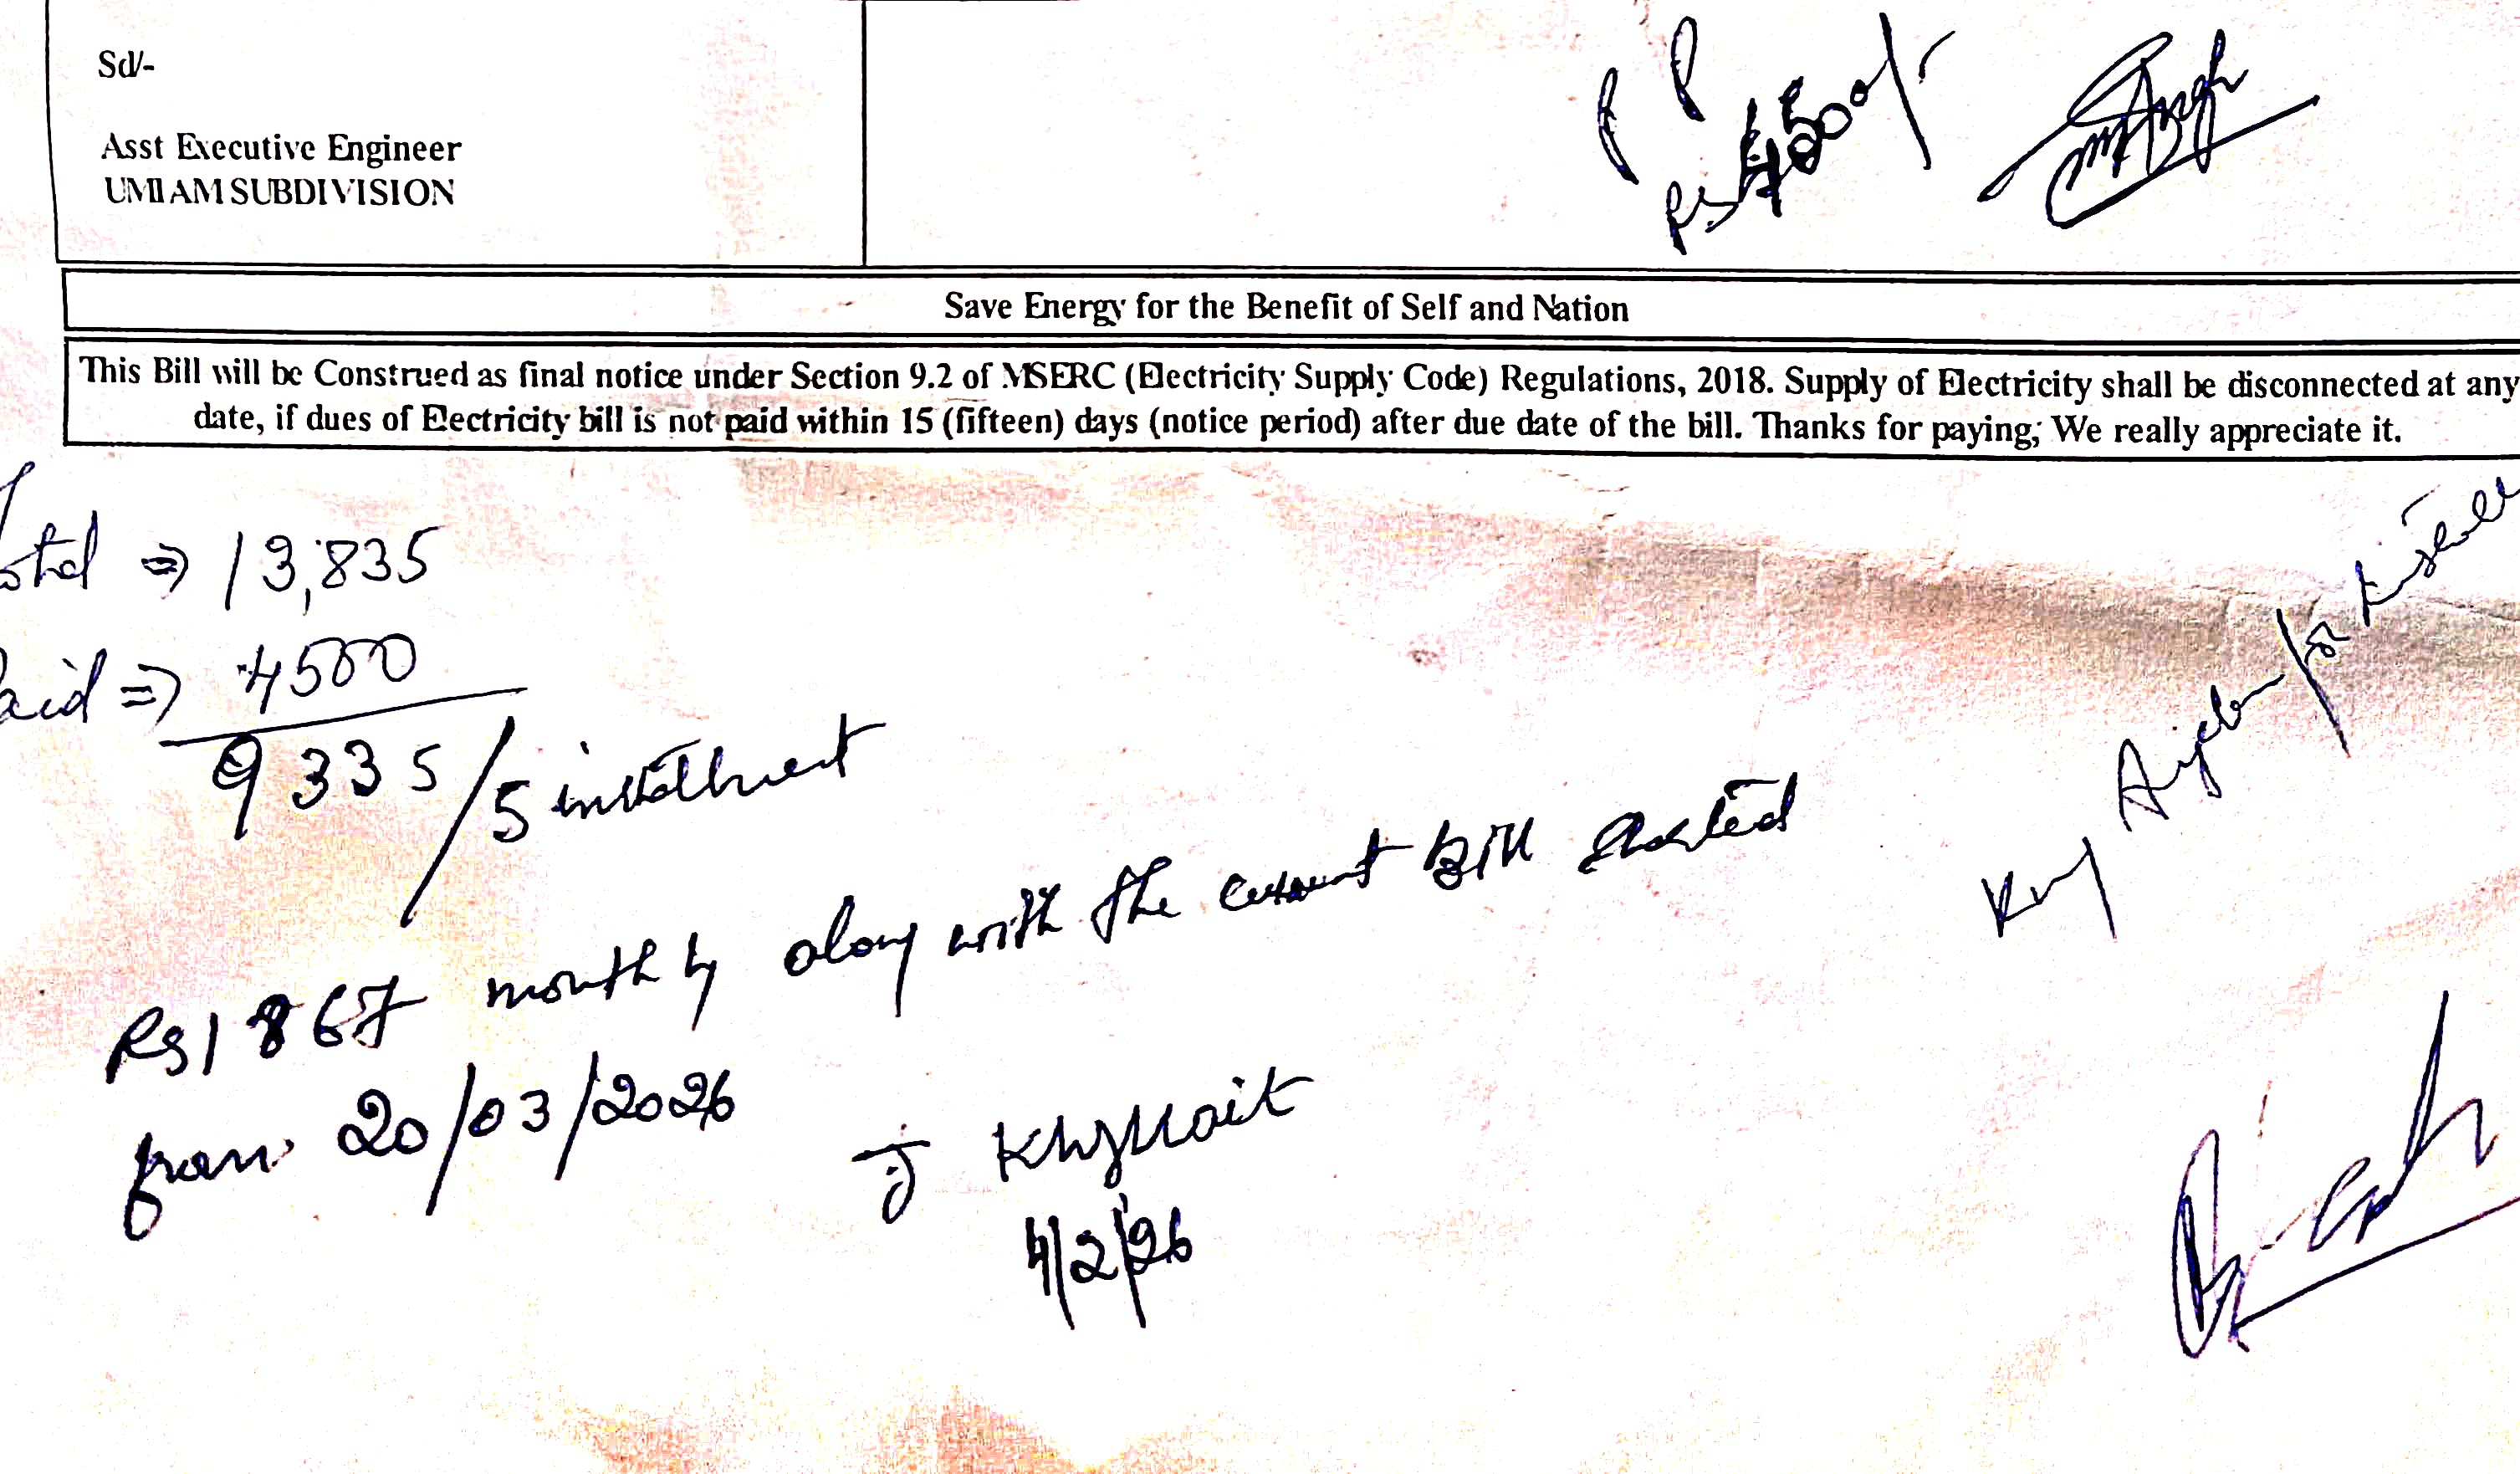 Sd/-
Rs 4500/-
Asst Executive Engineer
UMIAM SUBDIVISION
Save Energy for the Benefit of Self and Nation
This Bill will be Construed as final notice under Section 9.2 of MSERC (Electricity Supply Code) Regulations, 2018. Supply of Electricity shall be disconnected at any
date, if dues of Electricity bill is not paid within 15 (fifteen) days (notice period) after due date of the bill. Thanks for paying; We really appreciate it.
otal ⇒ 13,835
aid ⇒ 4500
9335/5 installment
Rs 1867 monthly along with the current bill started
from 20/03/2026
J Khyriait
4/2/26